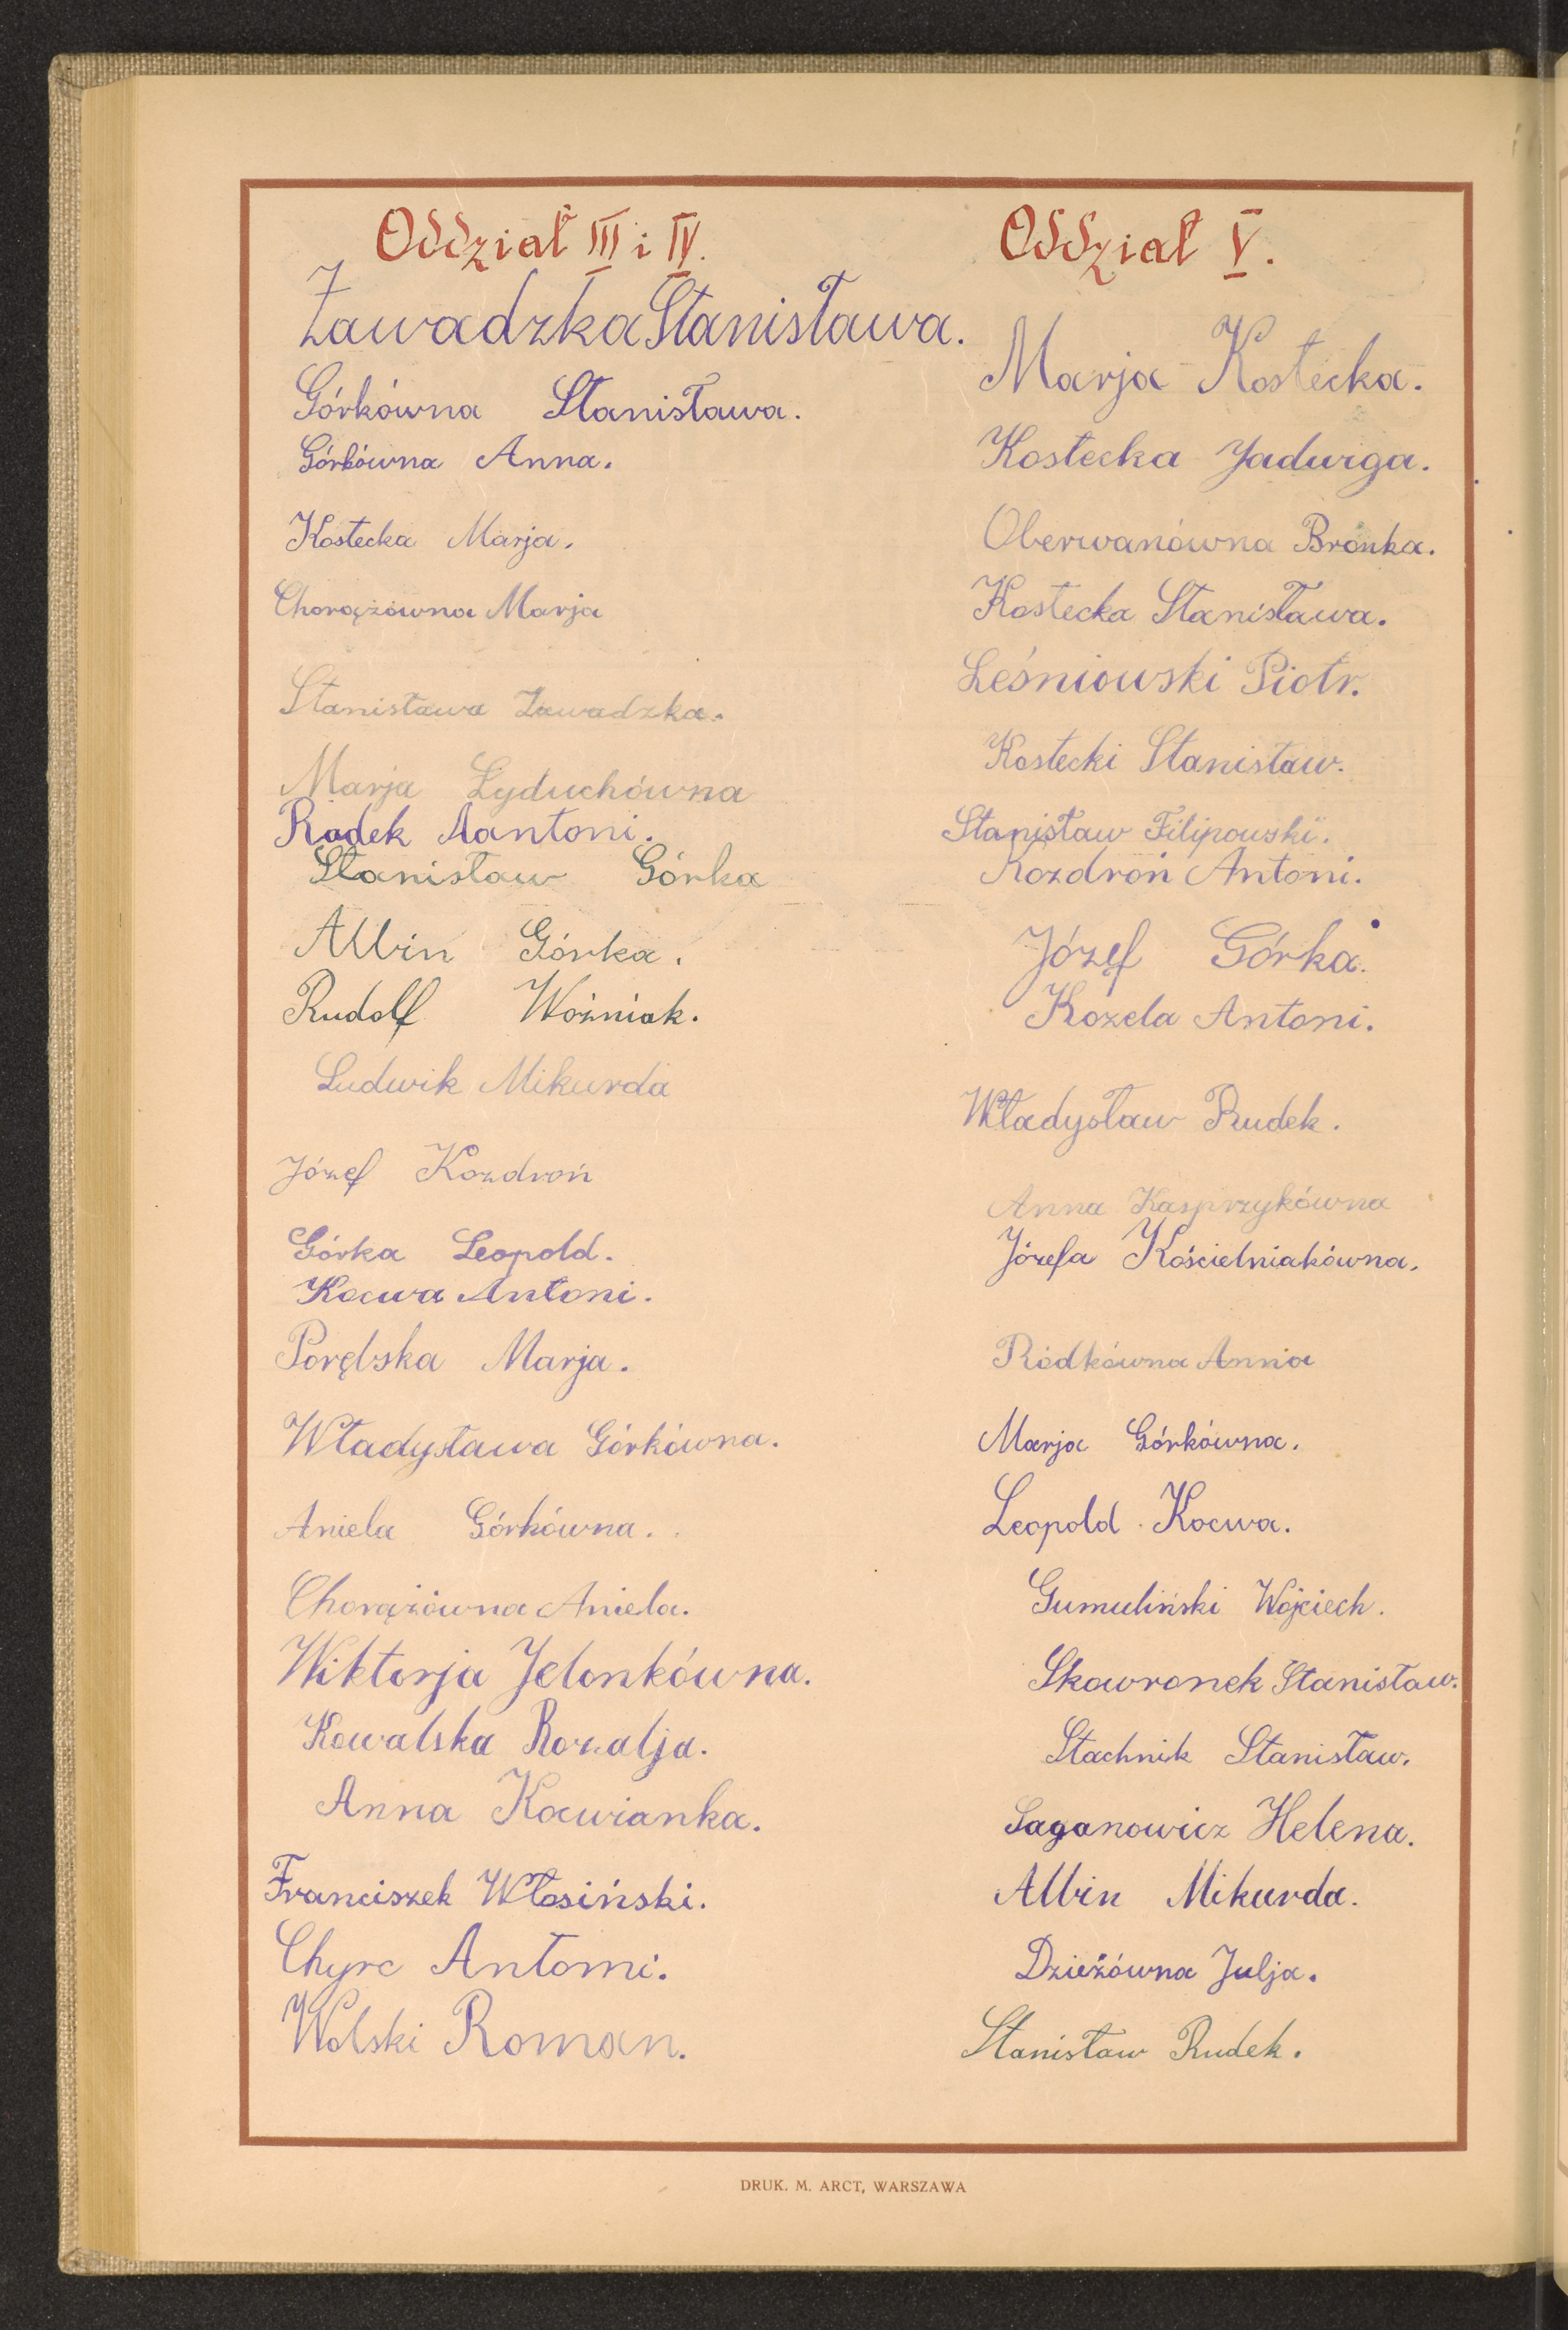 Oddział III i IV.
Zawadzka Stanisława.
Górkówna Stanisława.
Górkówna Anna.
Kostecka Marja.
Chorążówna Marja
Stanisława Zawadzka.
Marja Łyduchówna
Radek Aantoni.
Stanisław Górka
Albin Górka.
Rudolf Woźniak.
Ludwik Mikurda
Józef Kozdroń
Górka Leopold.
Kocwa Antoni.
Porębska Marja.
Władysława Górkówna.
Aniela Górkówna.
Chorążówna Aniela.
Wiktorja Jelonkówna.
Kowalska Rozalja.
Anna Kocwianka.
Franciszek Włosiński.
Chyrc Antoni.
Wolski Roman.
Oddział V.
Marja Kostecka.
Kostecka Jadwiga.
Oberwanówna Brónka.
Kostecka Stanisława.
Leśniowski Piotr.
Kostecki Stanisław.
Stanisław Filipowski.
Kozdroń Antoni.
Józef Górka.
Kozela Antoni.
Władysław Rudek.
Anna Kasprzykówna
Józefa Kościelniakówna.
Ródkówna Anna
Marja Górkówna.
Leopold Kocwa.
Gumuliński Wojciech.
Skowronek Stanisław.
Stachnik Stanisław.
Saganowicz Helena.
Albin Mikurda.
Dzieżówna Julja.
Stanisław Rudek.
DRUK. M. ARCT, WARSZAWA